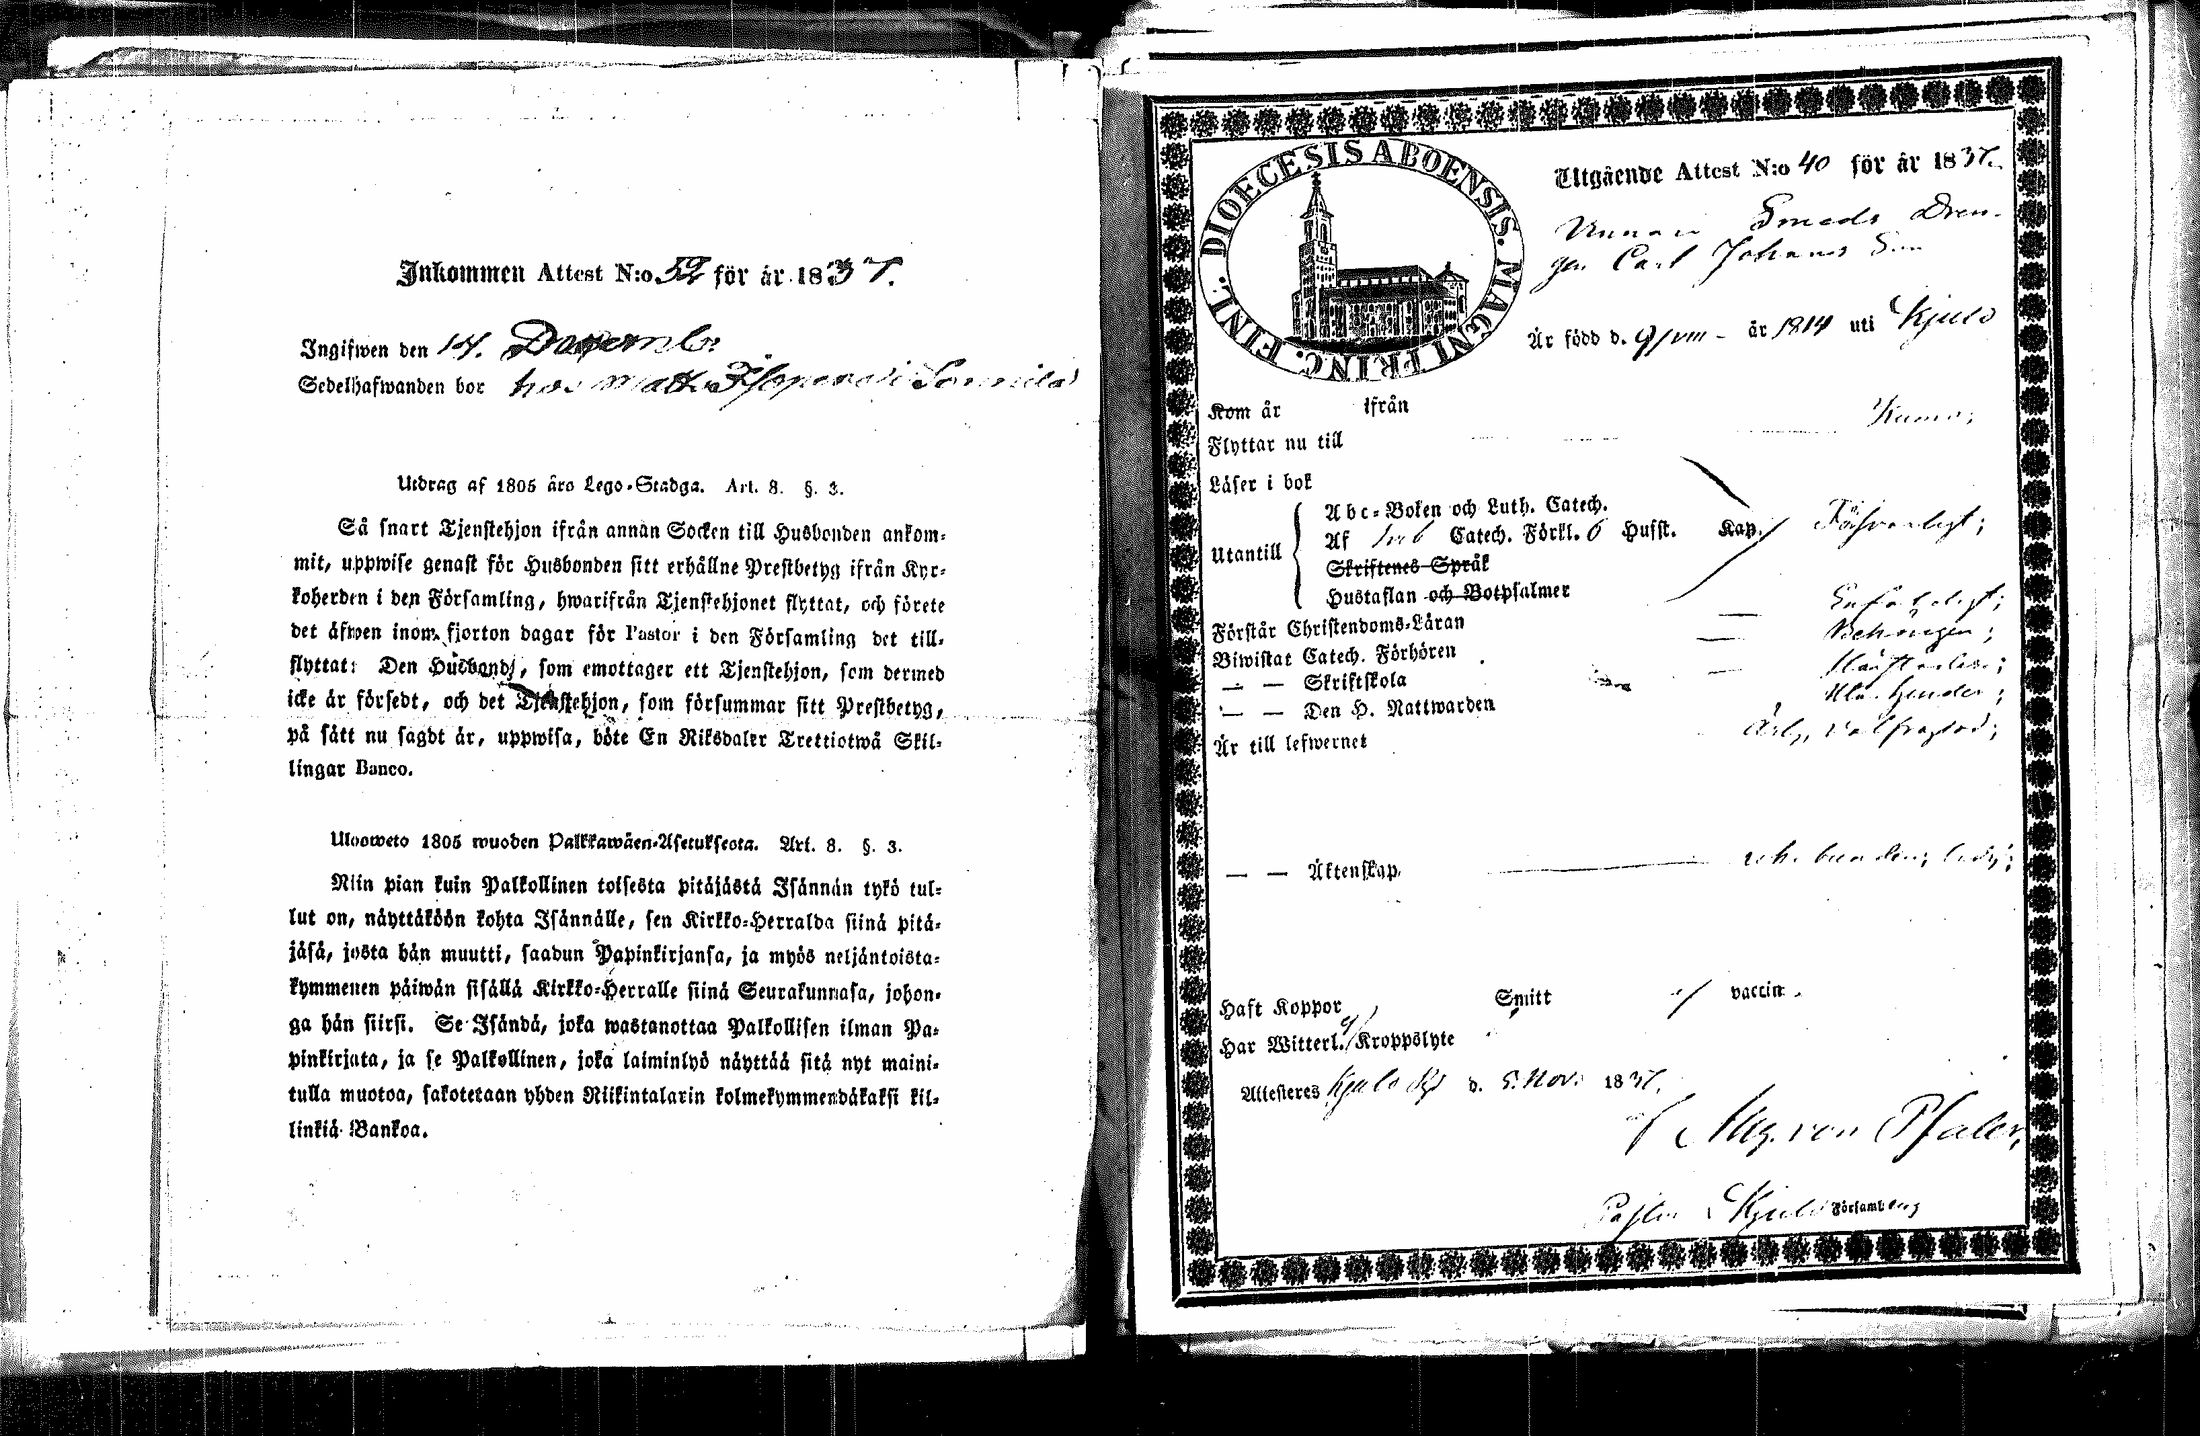 Inkommen Attest N:o 52 för år 1837.
Ingifwen den 14. Decembr
Sedelhafwanden bor hos Matts i Sonnila
Utdrag af 1805 års Lego-Stadga. Art. 8. §. 3.
Så snart Tjenstehjon ifrån annan Socken till Husbonden ankom-
mit, uppwise genast för Husbonden sitt erhållne Prestbetyg ifrån Kyr-
koherden i den Församling, hwarifrån Tjenstehjonet flyttat, och förete
det äfwen inom fjorton dagar för Pastor i den Församling det till-
flyttat: Den Husbond, som emottager ett Tjenstehjon, som dermed
icke är försedt, och det Tjenstehjon, som försummar sitt Prestbetyg,
på sätt nu sagdt är, uppwisa, böte En Riksdaler Trettiotwå Skil-
lingar Banco.
Ulosweto 1805 wuoden Palkkawäen-Asetuksesta. Art. 8. §. 3.
Niin pian kuin Palkollinen toisesta pitäjästä Isännän tykö tul-
lut on, näyttäköön kohta Isännälle, sen Kirkko-Herralda siinä pitä-
jäsä, josta hän muutti, saadun Papinkirjansa, ja myös neljäntoista-
kymmenen päiwän sisällä Kirkko-Herralle siinä Seurakunnasa, johon-
ga hän siirsi. Se Isändä, joka wastanottaa Palkollisen ilman Pa-
pinkirjata, ja se Palkollinen, joka laiminlyö näyttää sitä nyt maini-
tulla muotoa, sakotetaan yhden Riikintalarin kolmekymmendäkaksi kil-
linkiä Bankoa.
DIOECESIS ABOENSIS. MAGNI PRINC. FINL.
Utgående Attest N:o 40 för år 1837.
Smeds Dren-
gen Carl Johans Son
Är född d. 9/VIII - år 1814 uti Kjulo
Kom år ifrån
Flyttar nu till Kumo;
Läser i bok
Abc-Boken och Luth. Catech.
Utantill Af Catech. Förkl. 6 Husst. Kap. Försvarligt;
Skriftenes Språk
Hustaflan och Botpsalmer
Förstår Christendoms-Läran Enfaldeligt;
Biwistat Catech. Förhören Behörigen;
— — Skriftskola
— — Den H. Nattwarden
Är till lefwernet Ärlig, välfrägdad;
— — Äktenskap. obunden; ledig;
Haft Koppor Smitt vaccin.
Har Witterl. Kroppslyte
Attesteres Kjulo d. 5. Nov. 1837.
Aug. von Pfaler,
Kjulo Församling